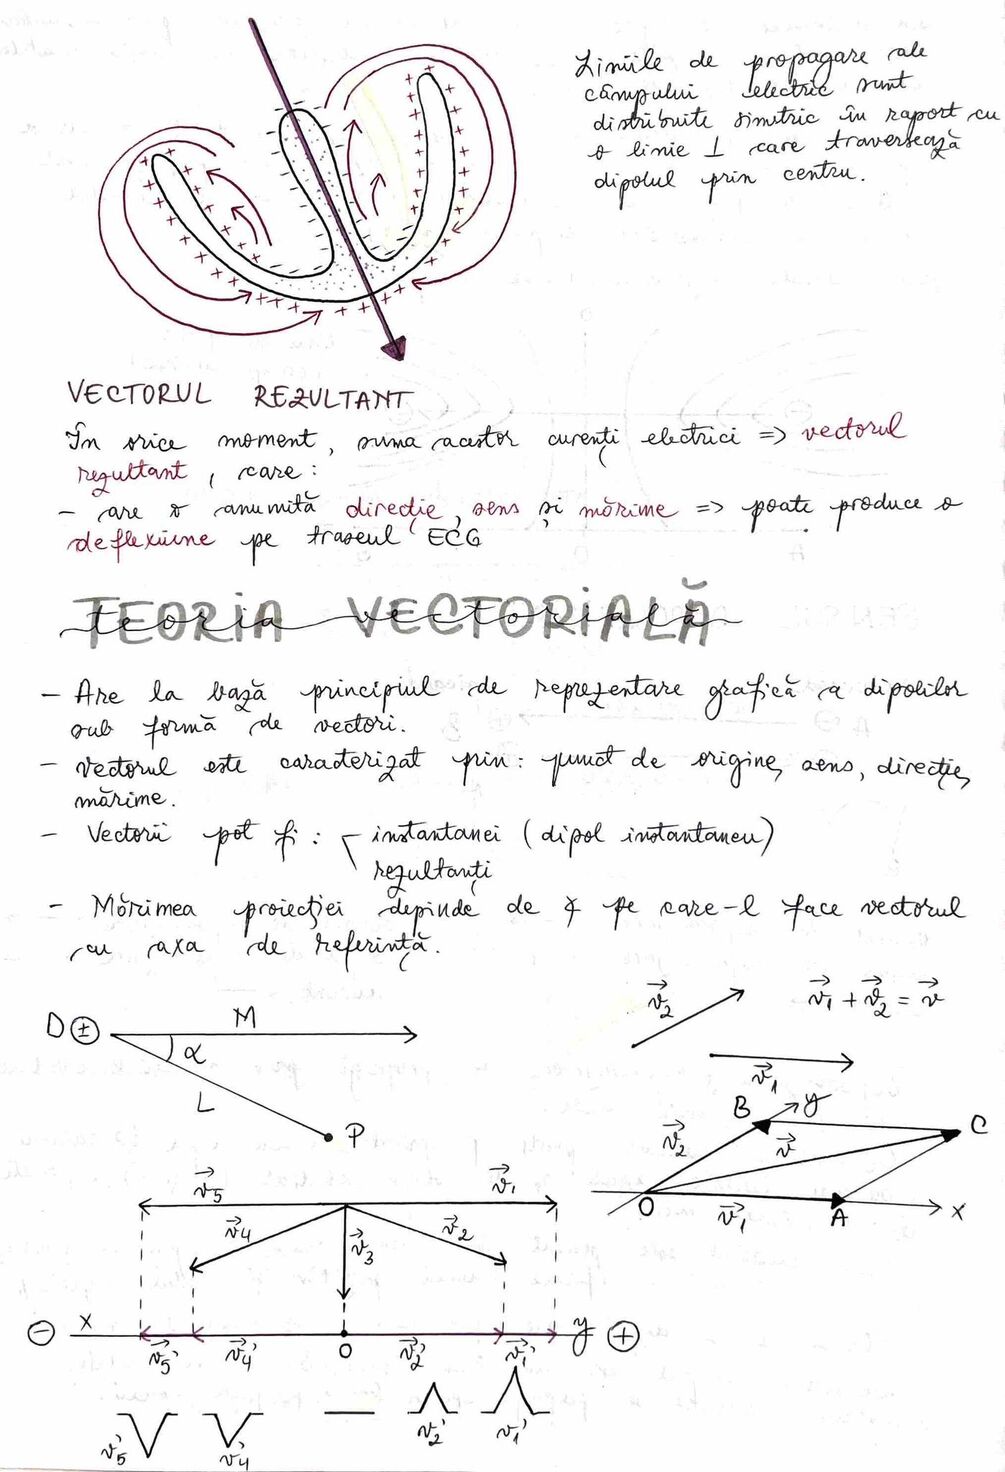 Liniile de propagare ale
câmpului electric sunt
distribuite simetric în raport cu
o linie ⊥ care traversează
dipolul prin centru.
VECTORUL REZULTANT
În orice moment, suma acestor curenți electrici => vectorul
rezultant, care:
- are o anumită direcție, sens și mărime => poate produce o
deflexiune pe traseul ECG
TEORIA VECTORIALĂ
- Are la bază principiul de reprezentare grafică a dipolilor
sub formă de vectori.
- Vectorul este caracterizat prin: punct de origine, sens, direcție,
mărime.
- Vectorii pot fi: instantanei (dipol instantaneu)
rezultanți
- Mărimea proiecției depinde de ∢ pe care-l face vectorul
cu axa de referință.
D ± M
α
L
P
v₂ v₁ + v₂ = v
v₁
B y
v₂ v C
O v₁ A x
v₅ v₁
v₄ v₃ v₂
- x O y +
v₅' v₄' v₂' v₁'
v₅' v₄' v₂' v₁'